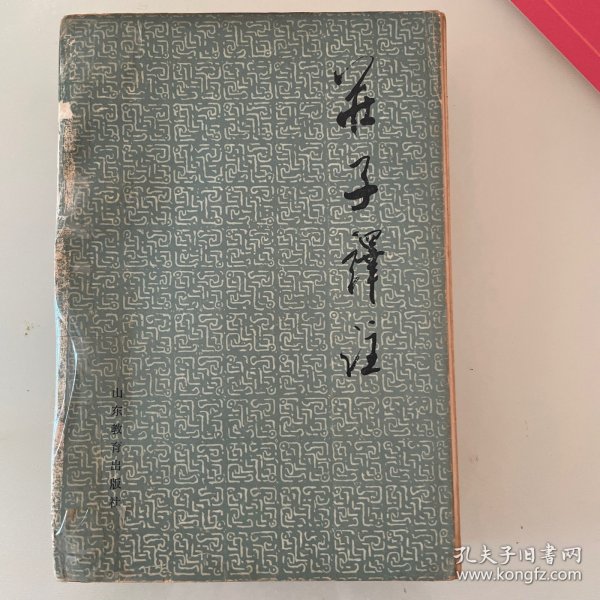 莊子譯注
山东教育出版社
孔夫子旧书网
www.kongfz.com